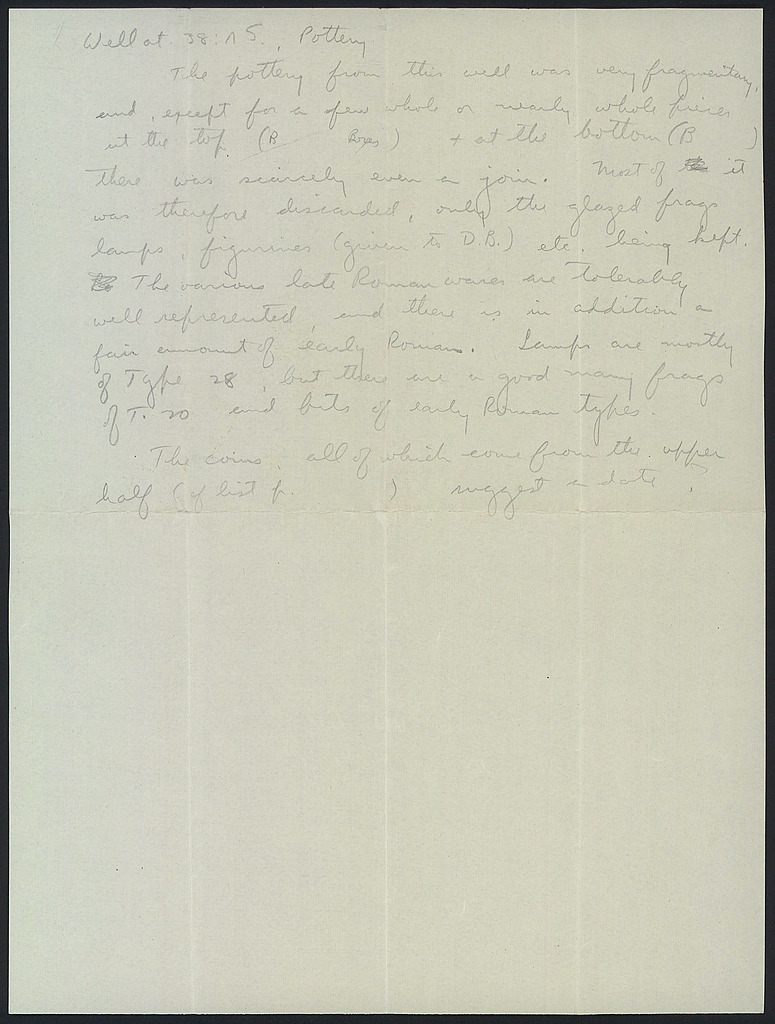 Well at 38:ΛΣ., Pottery
The pottery from this well was very fragmentary,
and, except for a few whole or nearly whole pieces
at the top (B Boxes) + at the bottom (B )
there was scarcely even a join. Most of it
was therefore discarded, only the glazed frags
lamps, figurines (given to D.B.) etc. being kept.
The various late Roman wares are tolerably
well represented, and there is in addition a
fair amount of early Roman. Lamps are mostly
of Type 28, but there are a good many frags
of T. 20 and bits of early Roman types.
The coins, all of which come from the upper
half (cf list p. ) suggest a date